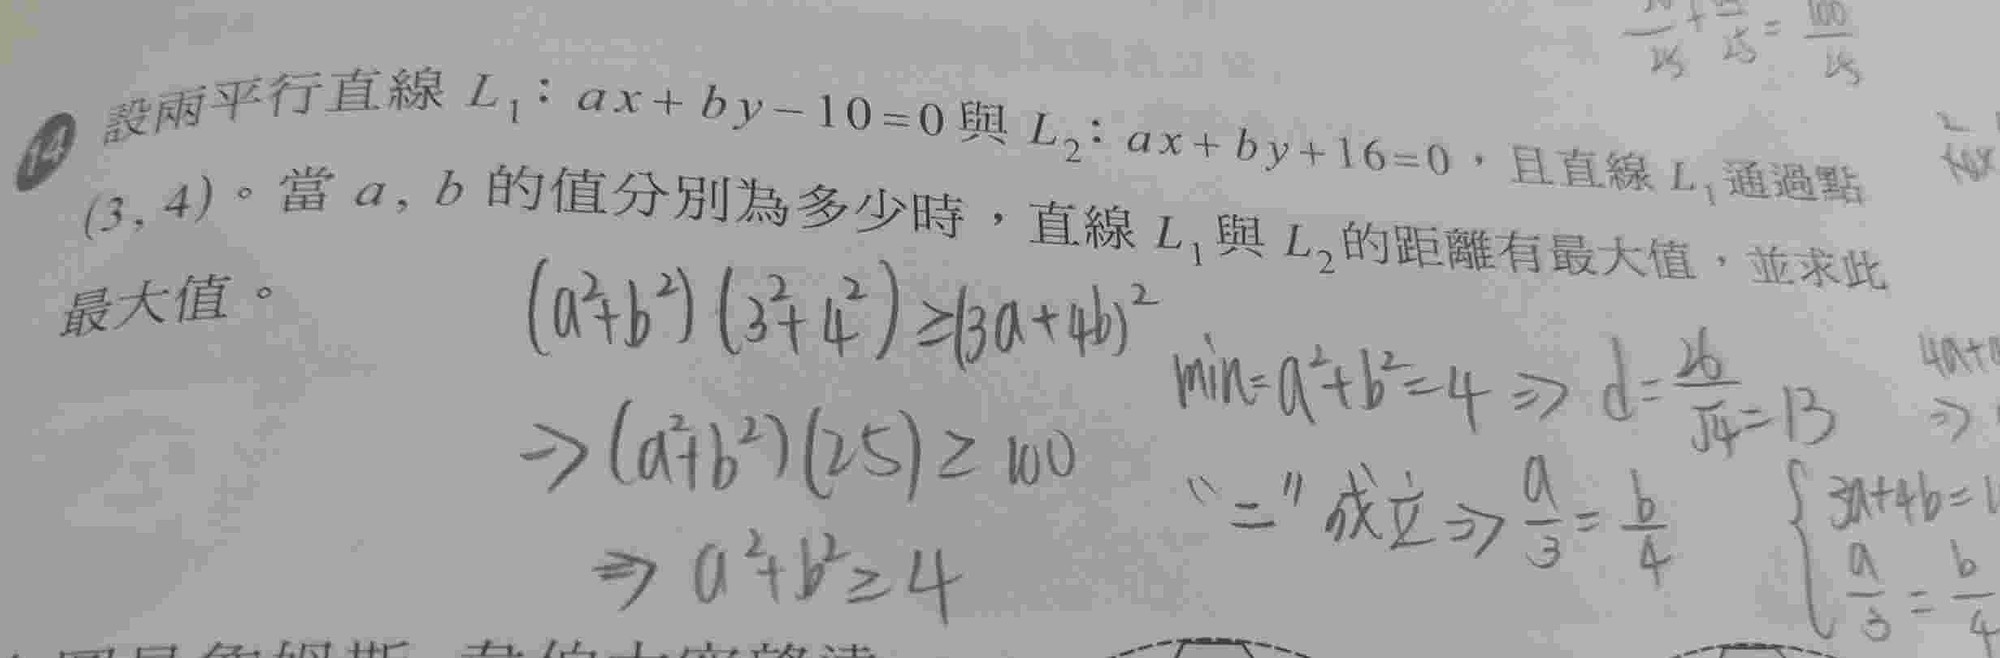 14 設兩平行直線 L₁：ax+by−10=0 與 L₂：ax+by+16=0，且直線 L₁ 通過點
(3, 4)。當 a, b 的值分別為多少時，直線 L₁ 與 L₂ 的距離有最大值，並求此
最大值。
(a²+b²)(3²+4²)≥(3a+4b)²
⇒(a²+b²)(25)≥100
⇒ a²+b²≥4
min=a²+b²=4 ⇒ d=26/√4=13
"=" 成立⇒ a/3 = b/4
3a+4b=1
a/3 = b/4